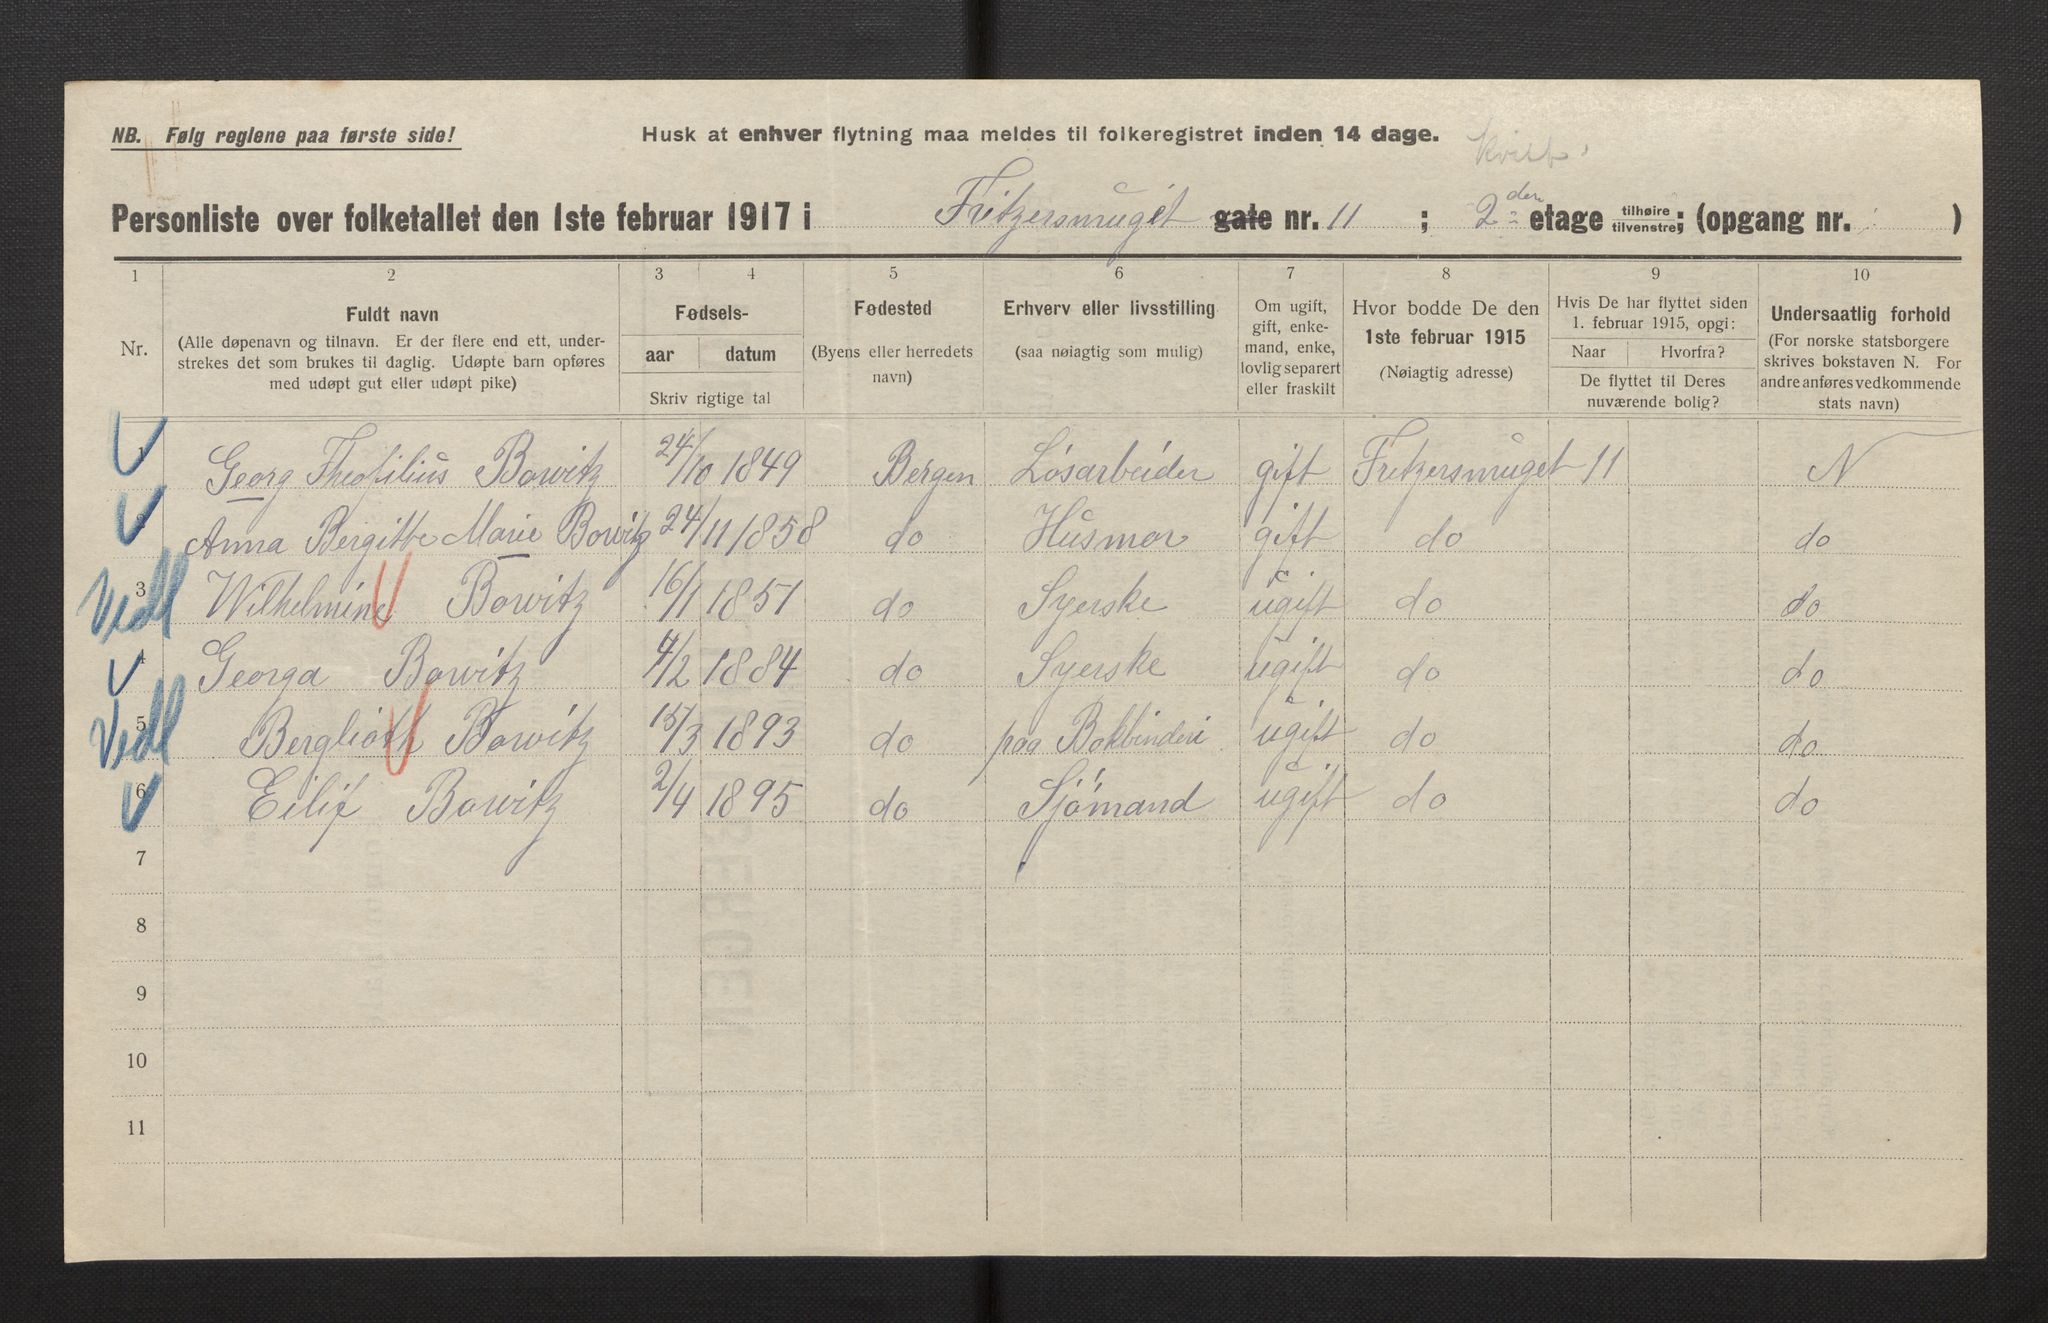 NB. Følg reglene paa første side! Husk at enhver flytning maa meldes til folkeregistret inden 14 dage.
Personliste over folketallet den 1ste februar 1917 i Fritzersmuget gate nr. 11 ; 2den etage tilhøire tilvenstre; (opgang nr. )
1 2 3 4 5 6 7 8 9 10
Nr.
Fuldt navn
(Alle døpenavn og tilnavn. Er der flere end ett, under-
strekes det som brukes til daglig. Udøpte barn opføres
med udøpt gut eller udøpt pike)
Fødsels-
aar datum
Skriv rigtige tal
Fødested
(Byens eller herredets
navn)
Erhverv eller livsstilling
(saa nøiagtig som mulig)
Om ugift,
gift, enke-
mand, enke,
lovlig separert
eller fraskilt
Hvor bodde De den
1ste februar 1915
(Nøiagtig adresse)
Hvis De har flyttet siden
1. februar 1915, opgi:
Naar Hvorfra?
De flyttet til Deres
nuværende bolig?
Undersaatlig forhold
(For norske statsborgere
skrives bokstaven N. For
andre anføres vedkommende
stats navn)
1 Georg Theofilius Bowitz 24/10 1849 Bergen Lösarbeider gift Fritzersmuget 11 N
2 Anna Bergitte Marie Bowitz 24/11 1858 do Husmor gift do do
Vedl 3 Wilhelmine Bowitz 16/1 1851 do Syerske ugift do do
4 Georga Bowitz 4/2 1884 do Syerske ugift do do
Vedl 5 Berglioth Bowitz 15/3 1893 do paa Bokbinderi ugift do do
6 Eilif Bowitz 2/4 1895 do Sjömand ugift do do
7
8
9
10
11